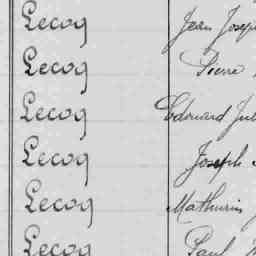 Lecoq Jean Josep
Lecoq Pierre
Lecoq Edouard Jul
Lecoq Joseph
Lecoq Mathurin J
Lecoq Paul